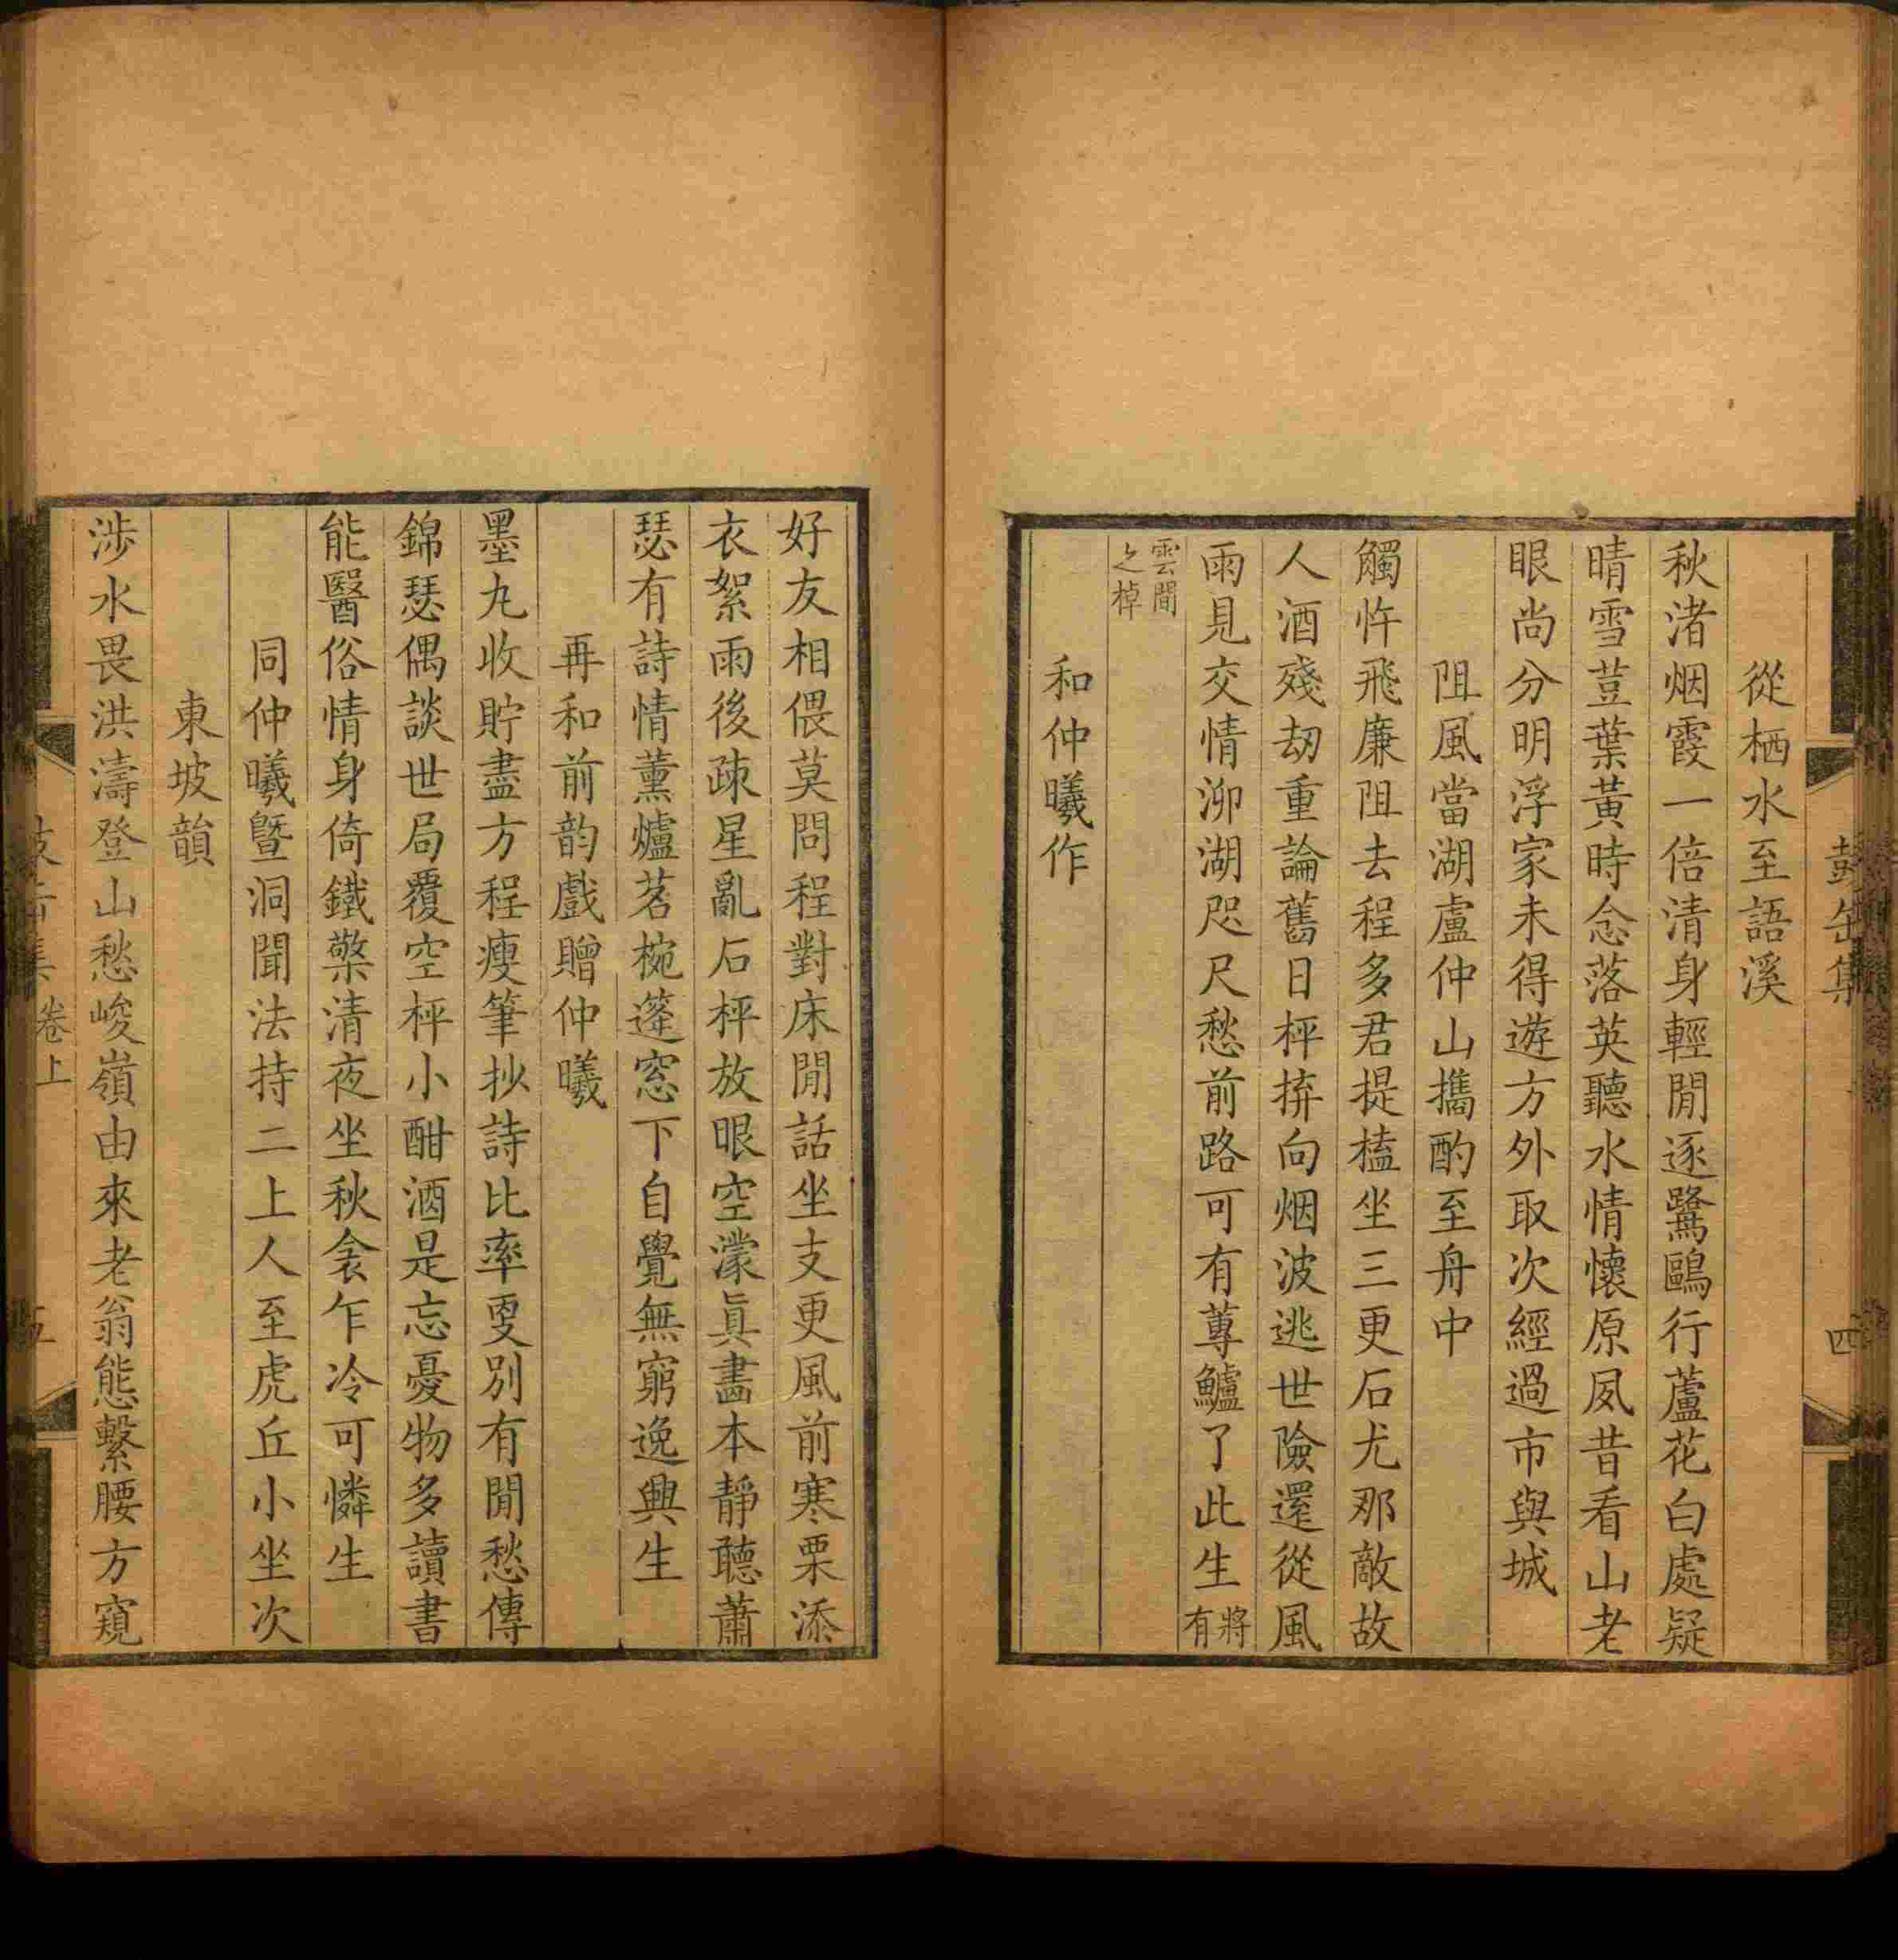 從栖水至語溪
秋渚烟霞一倍清身輕閒逐鷺鷗行蘆花白處疑
晴雪荳葉黃時念落英聽水情懷原夙昔看山老
眼尚分明浮家未得遊方外取次經過市與城
阻風當湖盧仲山攜酌至舟中
觸忤飛廉阻去程多君提榼坐三更石尤那敵故
人酒殘劫重論舊日枰拚向烟波逃世險還從風
雨見交情泖湖咫尺愁前路可有蓴鱸了此生將有
雲間之棹
和仲曦作
好友相偎莫問程對床閒話坐支更風前寒栗添
衣絮雨後疎星亂石枰放眼空濛眞畵本靜聽蕭
瑟有詩情薰爐茗椀篷窓下自覺無窮逸興生
再和前韵戲贈仲曦
墨丸收貯盡方程瘦筆抄詩比率更別有閒愁傳
錦瑟偶談世局覆空枰小酣酒是忘憂物多讀書
能醫俗情身倚鐵檠清夜坐秋衾乍冷可憐生
同仲曦曁洞聞法持二上人至虎丘小坐次
東坡韻
涉水畏洪濤登山愁峻嶺由來老翁態繫腰方窺
卷上
四
五